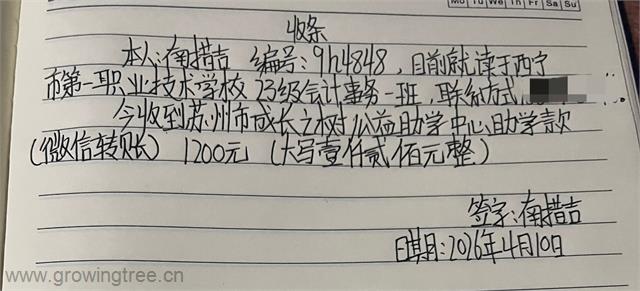 Mo Tu We Th Fr Sa Su
收条
本人:南措吉 编号:9h4848,目前就读于西宁
市第一职业技术学校 23级会计事务一班,联络方式
今收到苏州市成长之树公益助学中心助学款
(微信转账) 1200元 (大写壹仟贰佰元整)
签字:南措吉
日期:2026年4月10日
www.growingtree.cn